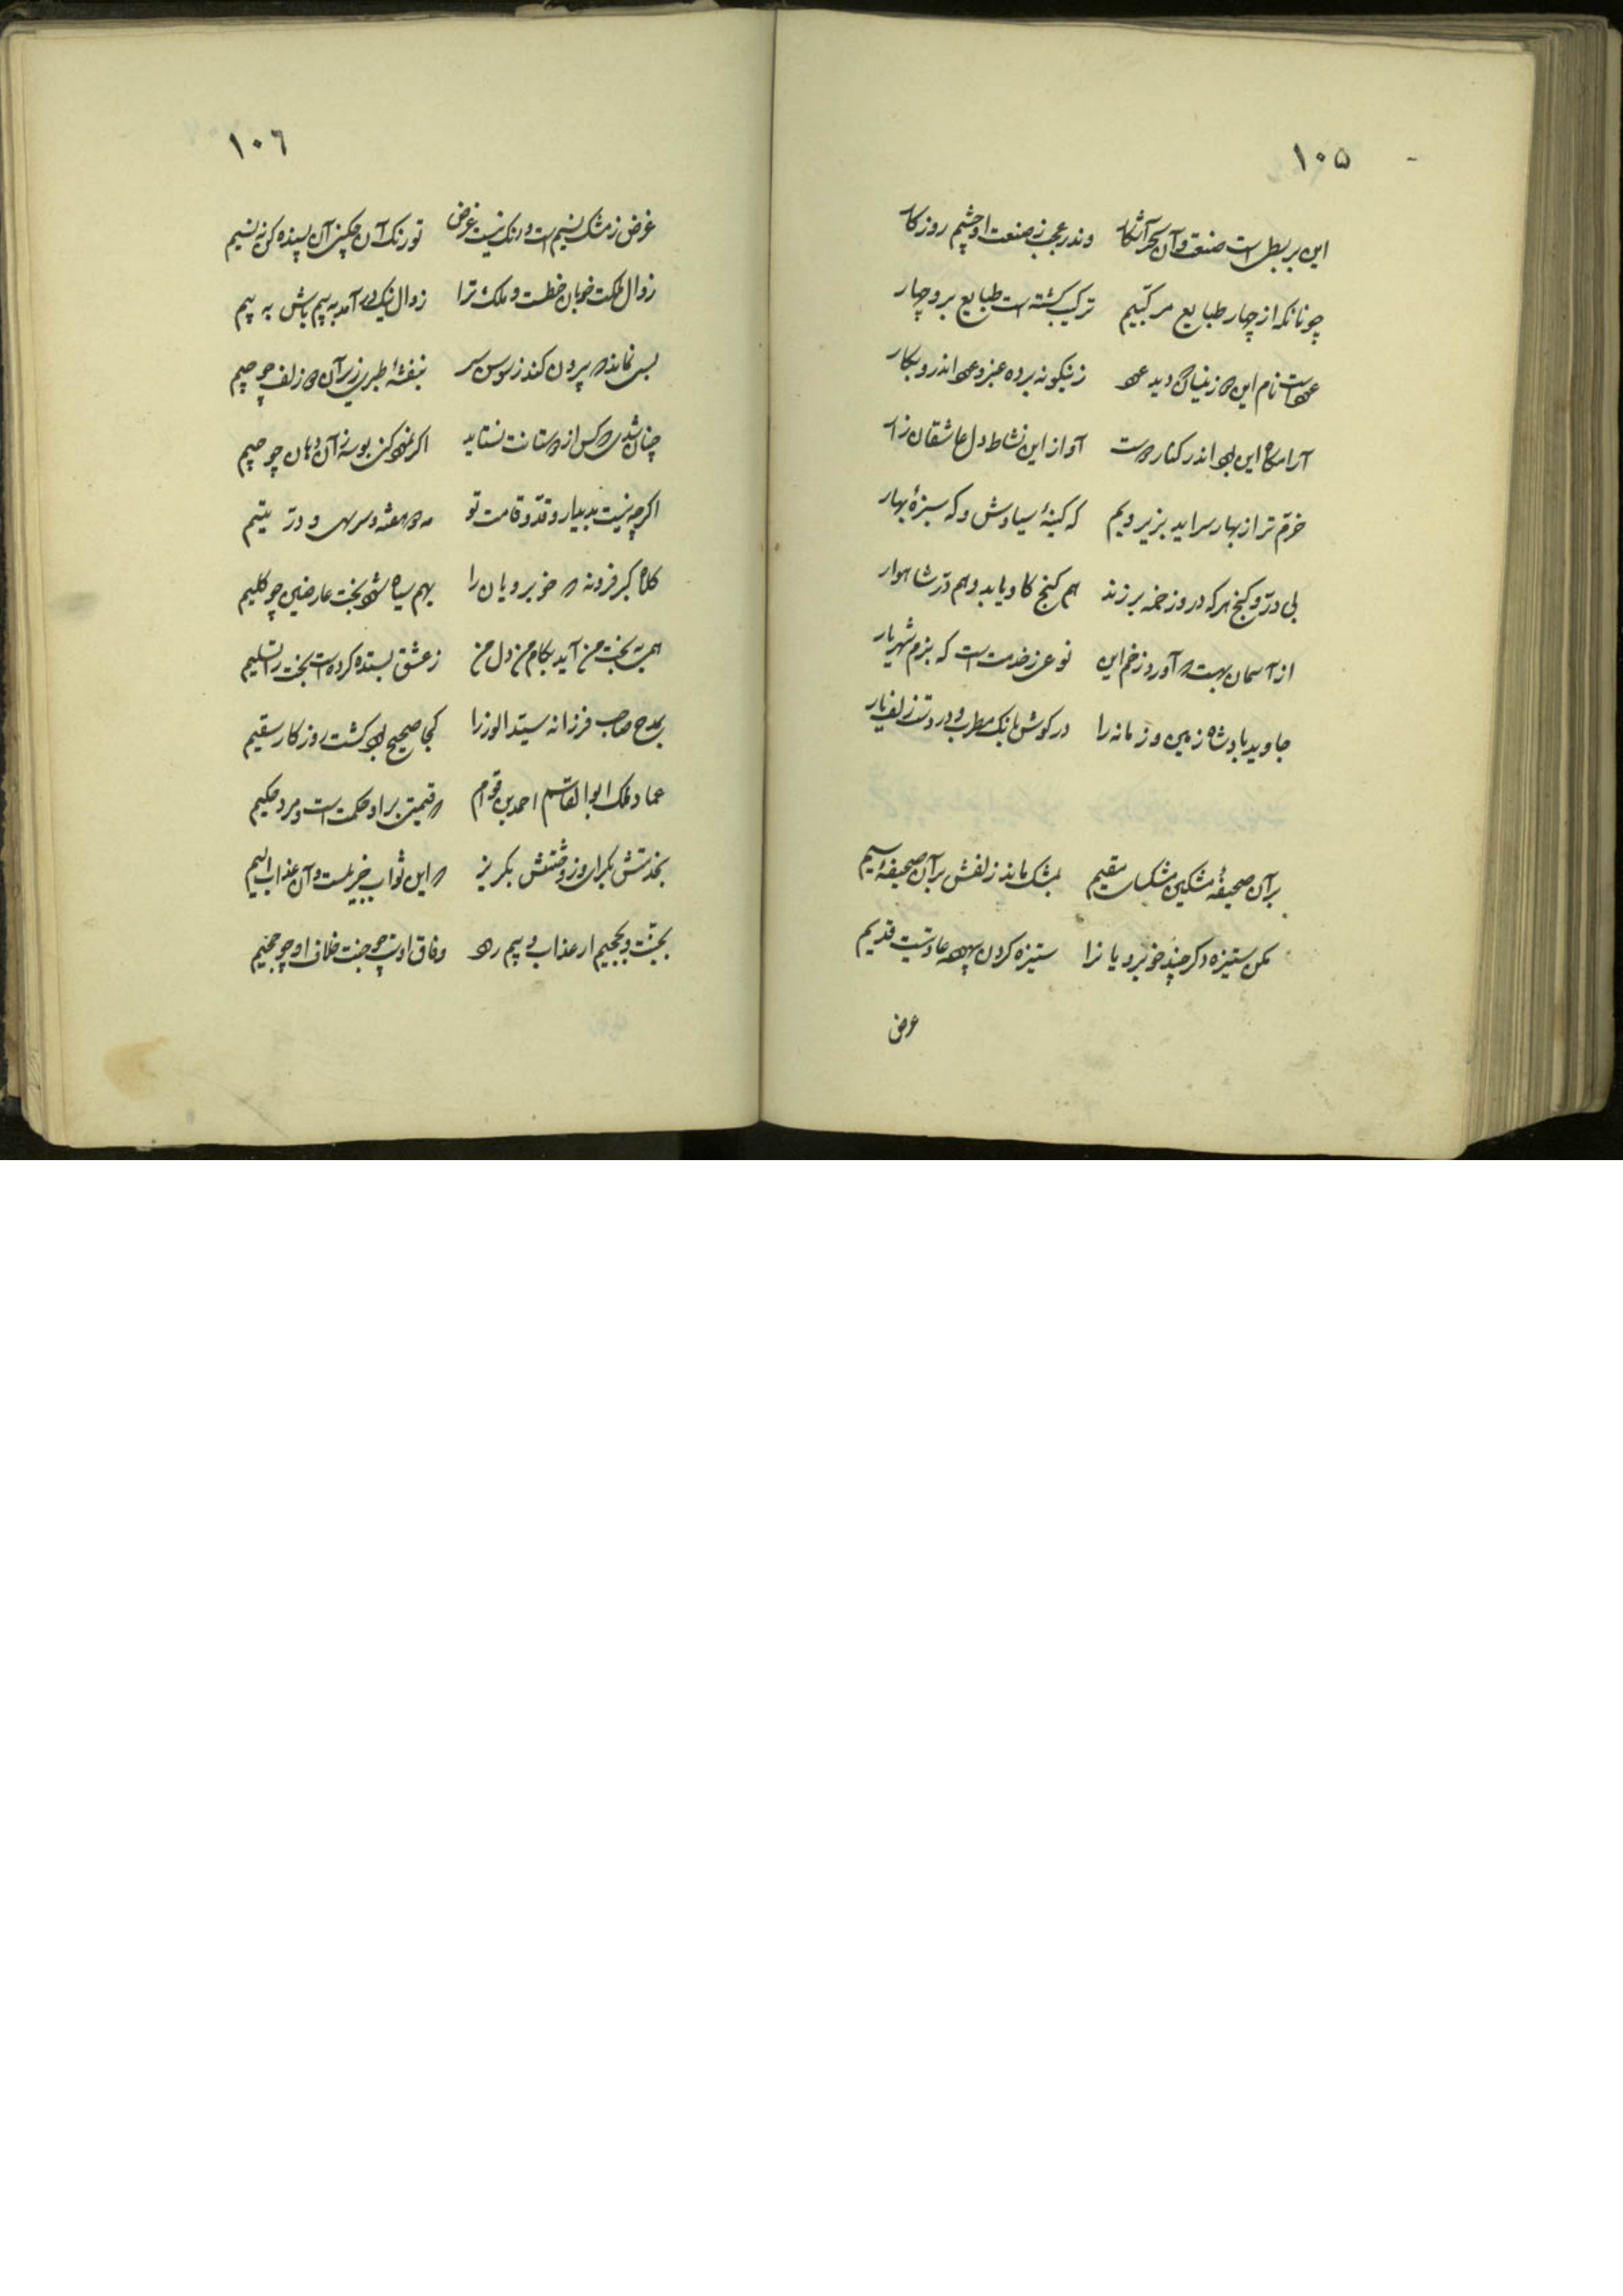 ١٠٥
این بربط است صنعت و آن سحر آشکار وندر عجب ز صنعت او چشم روزکار
چونانکه از چهار طبایع مرکبیم ترکیب کشته است طبایع برو چهار
عود است نام این و زینسان که دید عود زینکونه برده عنبر و عود اندرو بکار
آرامکاه این بود اندر کنار دوست آواز این نشاط دل عاشقان زار
خرّم تر از بهار سراید بزیر و بم که کینهٔ سیاوش و که سبزهٔ بهار
بی درّ و کنج هر که درو زخمه برزند هم کنج کاو یابد و هم درّ شاهوار
از آسمان بهت آورد زخم این نوعی ز خدمت است که بزم شهریار
جاوید باد شاه زمین و زمانه را در کوش بانک مطرب و در دست زلف یار
بر آن صحیفهٔ مشکین مشکسای مقیم بمشک ماند زلفش بر آن صحیفهٔ سیم
مکن ستیزه و کر چند خوبرویانرا ستیزه کردن بیهوده عادتیست قدیم
عرض
١٠٦
غرض ز مشک نسیم است و رنک نیست غرض تو رنک آن چکنی آن پسنده کن ز نسیم
زوال مملکت خوبان خطست و ملک ترا زوال نزدیک آمد به بیم باش به بیم
بسی نماند که بیرون کند ز سوسن سر بنفشهٔ طبری زیر آن دو زلف چو جیم
چنان شدی که کس از دوستانت نستاند اکر نهد کنی بوسه زان دهان چو میم
اکرچه نیست بدیدار و قدّ و قامت تو مه دو هفته و سرو سهی و درّ یتیم
کلاه کبر فرونه که خوبرویان را بهم سیاه شود بخت عارضین چو کلیم
همی نه بخت من آید بکام من دل من ز عشق بستده کرده است بخت را تسلیم
بمدح صاحب فرزانه سیّد الوزرا کجا صحیح بدو کشت روزکار سقیم
عماد ملک ابوالقاسم احمد بن قوام که قیمتی بر او حکمت است و مرد حکیم
بخدمتش بکرای و ز دشمنش بکریز که این ثواب جزیلست و آن عذاب الیم
بجنّت و بجحیم ار عذاب و بیم رود وفاق اوست چو جنت خلاف او چو جحیم